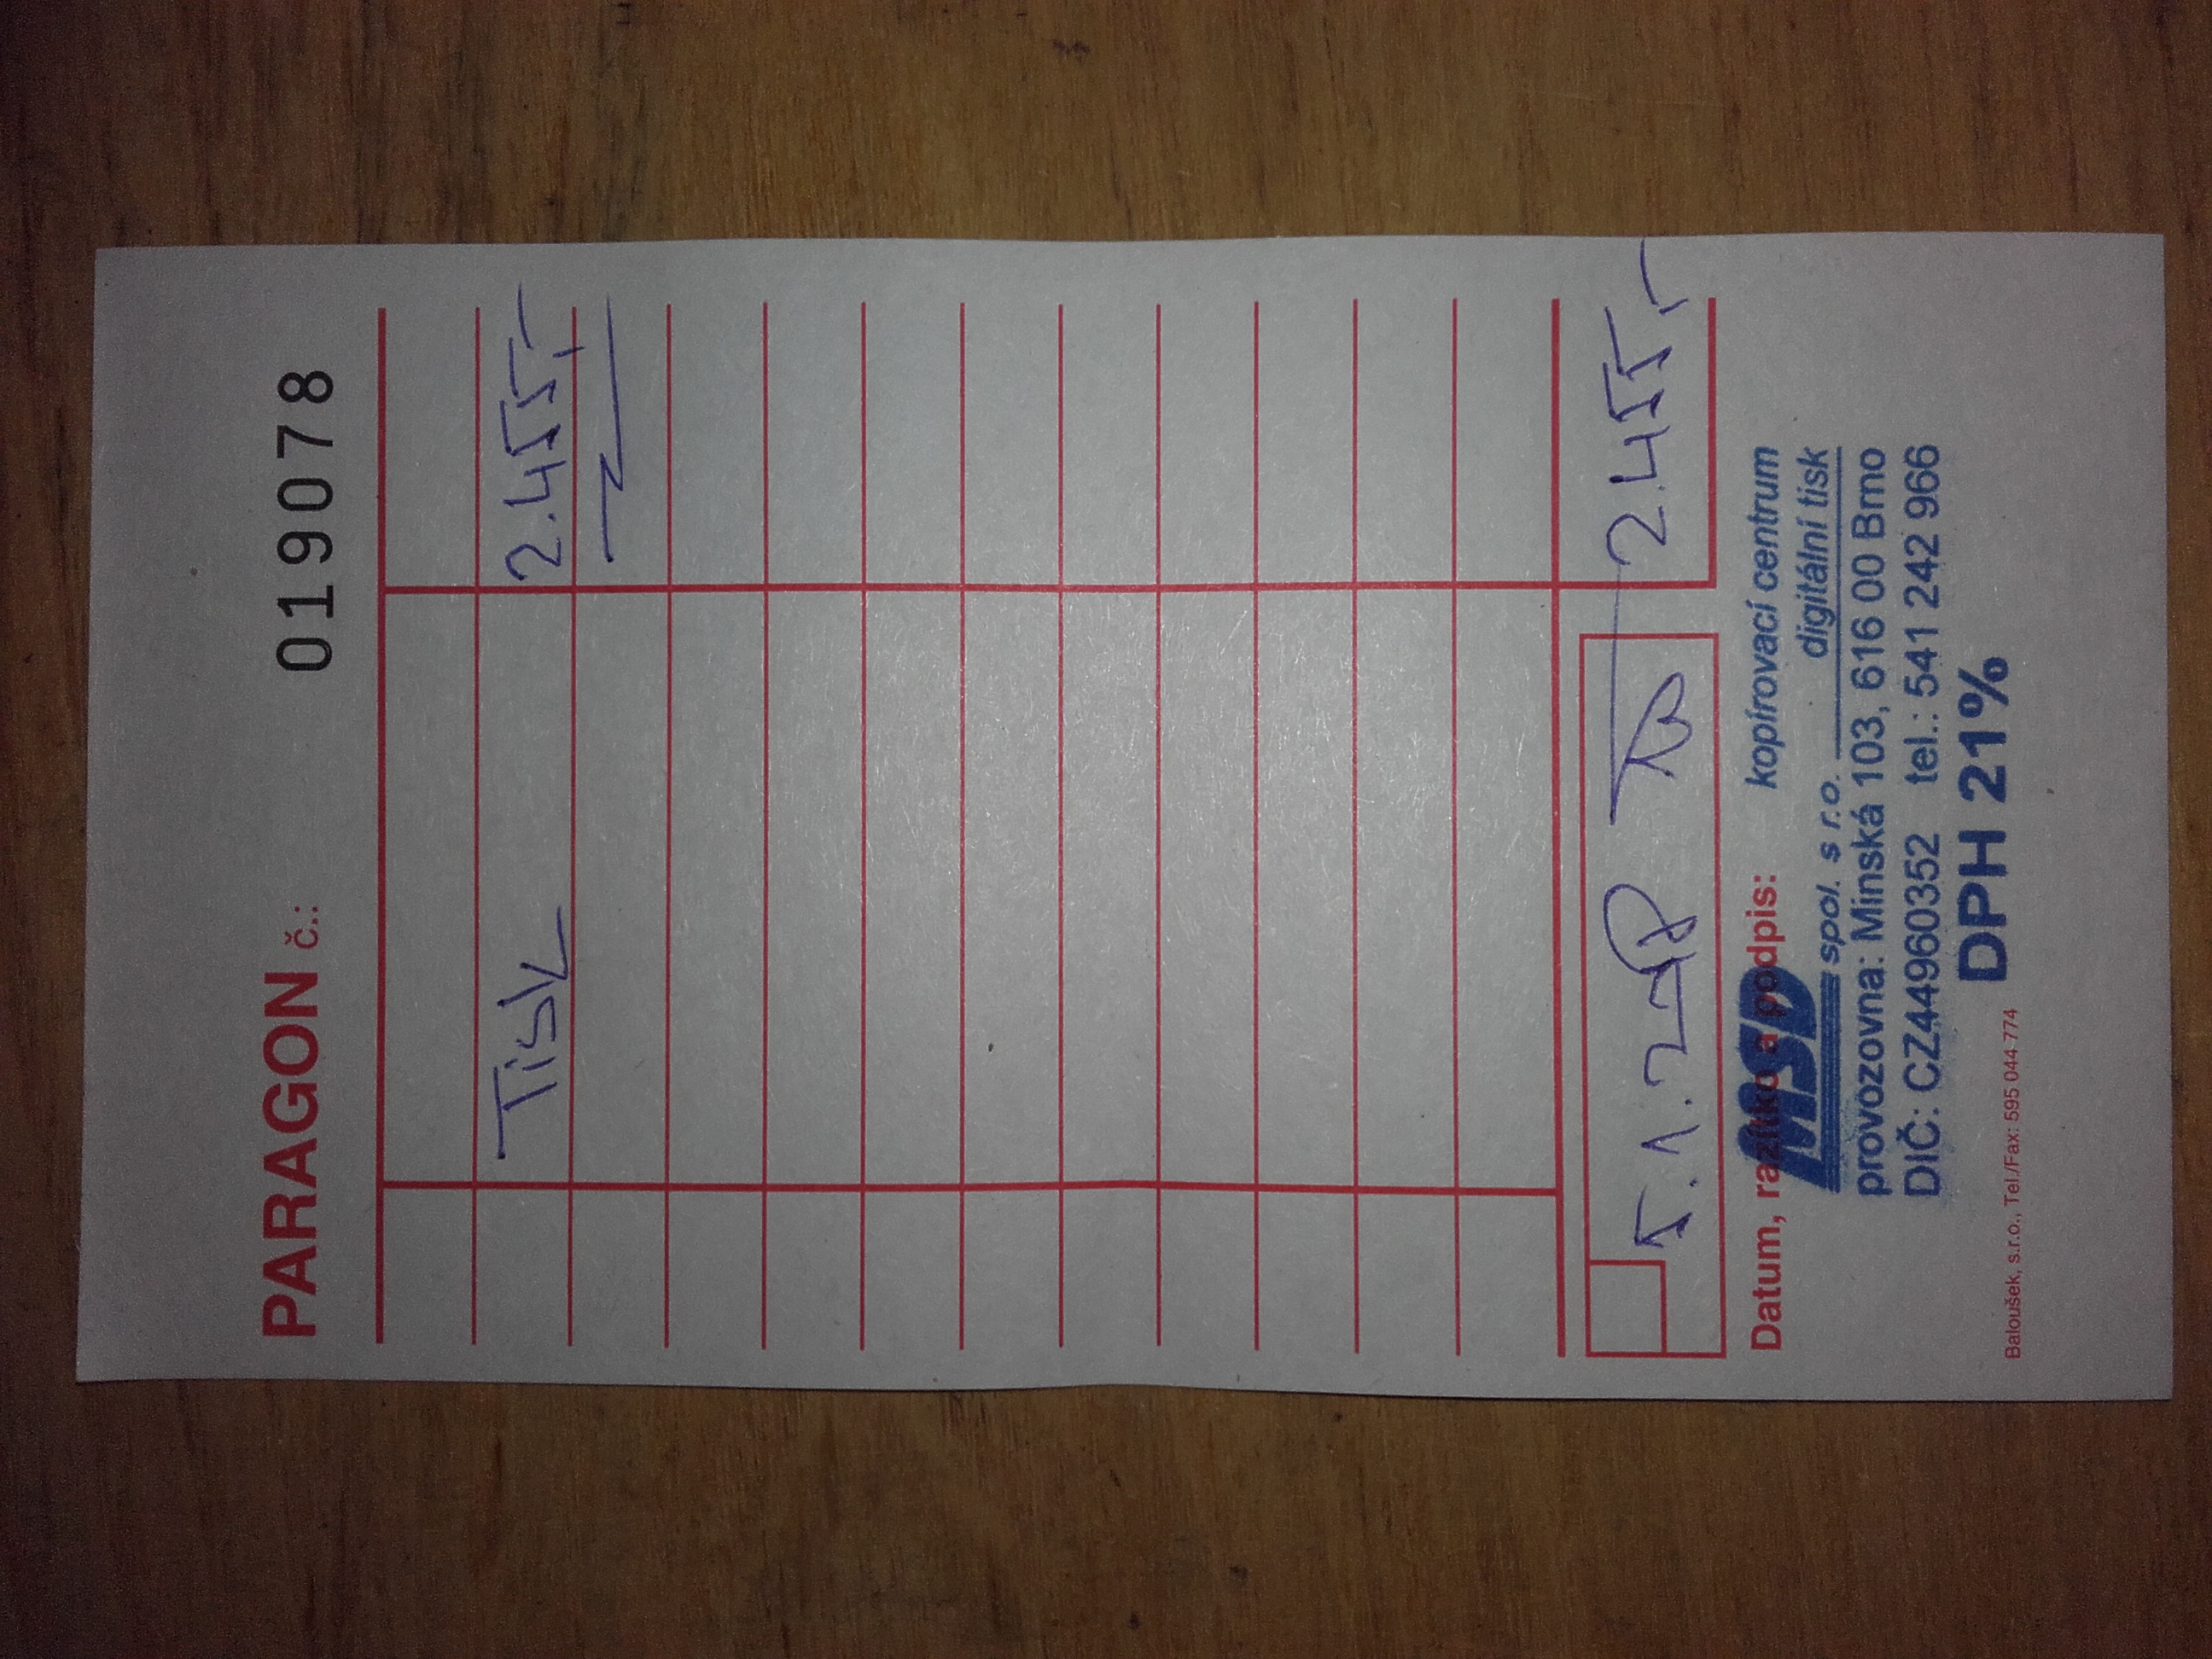 PARAGON č.: 019078
Tisk 2.455,-
5.1. 2.455,-
Datum, razítko a podpis:
MSD spol. s r.o.
kopírovací centrum
digitální tisk
provozovna: Minská 103, 616 00 Brno
DIČ: CZ44960352 tel.: 541 242 966
DPH 21%
Baloušek, s.r.o., Tel./Fax: 595 044 774